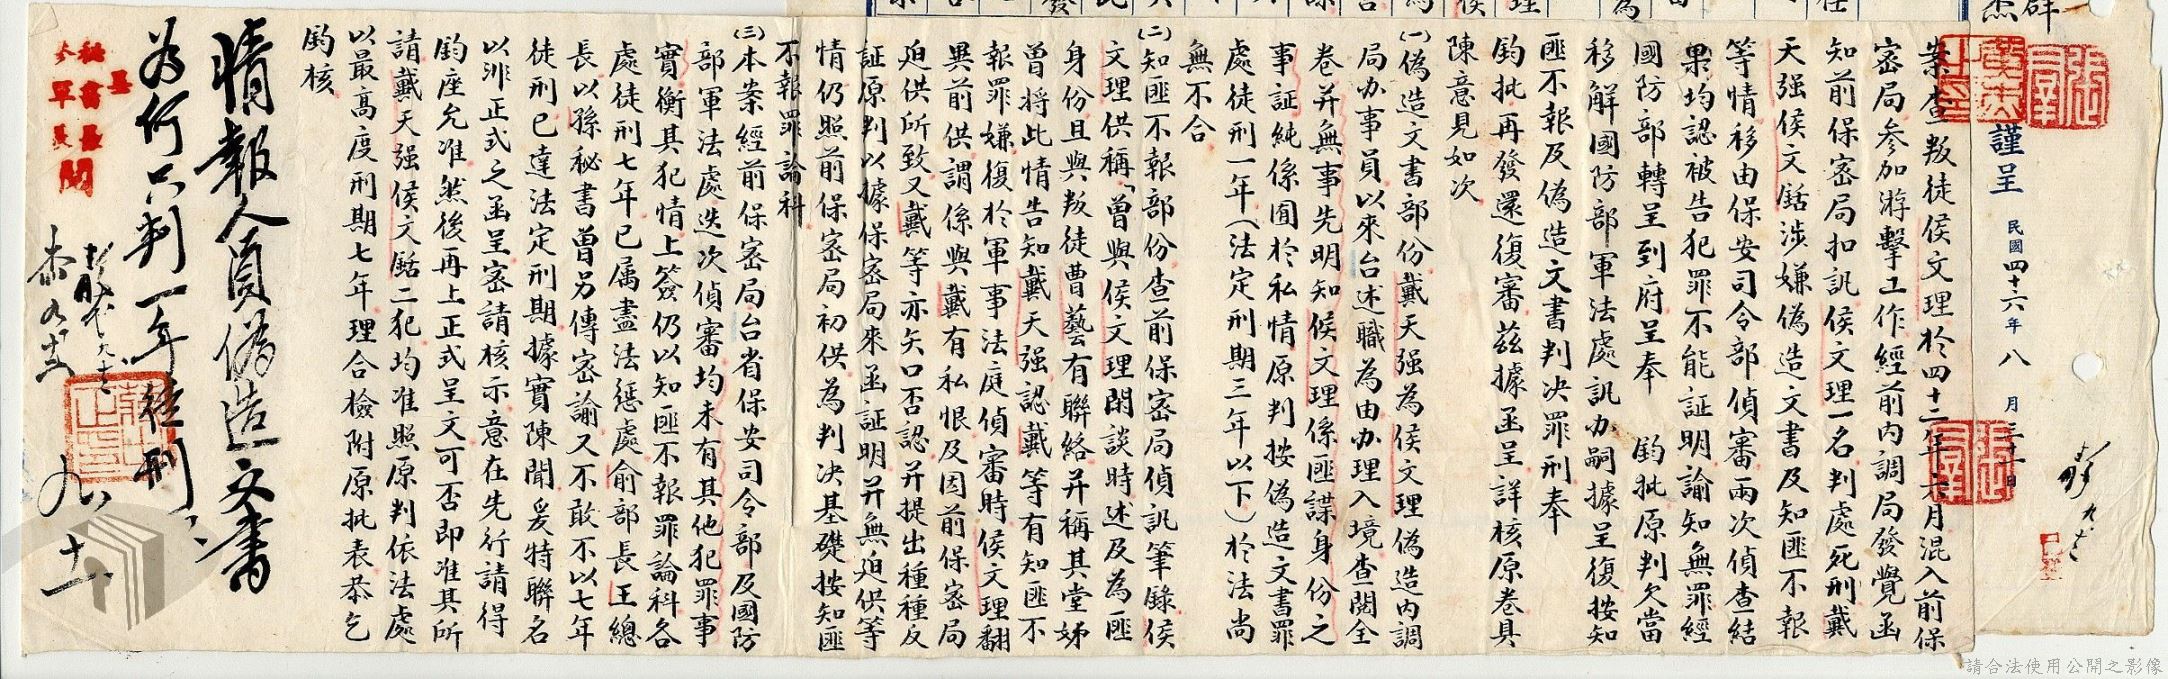 案查叛徒侯文理於四十二年六月混入前保
密局參加游擊工作經前內調局發覺函
知前保密局扣訊侯文理一名判處死刑戴
天强侯文銛涉嫌偽造文書及知匪不報
等情移由保安司令部偵審兩次偵查結
果均認被告犯罪不能証明諭知無罪經
國防部轉呈到府呈奉 鈞批原判欠當
移解國防部軍法處訊办嗣據呈復按知
匪不報及偽造文書判决罪刑奉
鈞批再發還復審茲據函呈詳核原卷具
陳意見如次
㈠偽造文書部份戴天强為侯文理偽造內調
局办事員以來台述職為由办理入境查閱全
卷并無事先明知侯文理係匪諜身份之
事証純係囿於私情原判按偽造文書罪
處徒刑一年(法定刑期三年以下)於法尚
無不合
㈡知匪不報部份查前保密局偵訊筆錄侯
文理供稱「曾與侯文理閑談時述及為匪
身份且與叛徒曹藝有聯絡并稱其堂姊
曾將此情告知戴天强認戴等有知匪不
報罪嫌復於軍事法庭偵審時侯文理翻
異前供謂係與戴有私恨及因前保密局
迫供所致又戴等亦矢口否認并提出種種反
証原判以據保密局來函証明并無迫供等
情仍照前保密局初供為判决基礎按知匪
不報罪論科
㈢本案經前保密局台省保安司令部及國防
部軍法處迭次偵審均未有其他犯罪事
實衡其犯情上簽仍以知匪不報罪論科各
處徒刑七年已属盡法懲處俞部長王總
長以孫秘書曾另傳密諭又不敢不以七年
徒刑已達法定刑期據實陳聞爰特聯名
以非正式之函呈密請核示意在先行請得
鈞座允准然後再上正式呈文可否即准其所
請戴天强侯文銛二犯均准照原判依法處
以最高度刑期七年理合檢附原批表恭乞
鈞核
謹呈 民國四十六年八月三十一日
情報人員偽造文書
為何只判一年徒刑
九、十一
呈
秘書長
參軍長
閱
請合法使用公開之影像